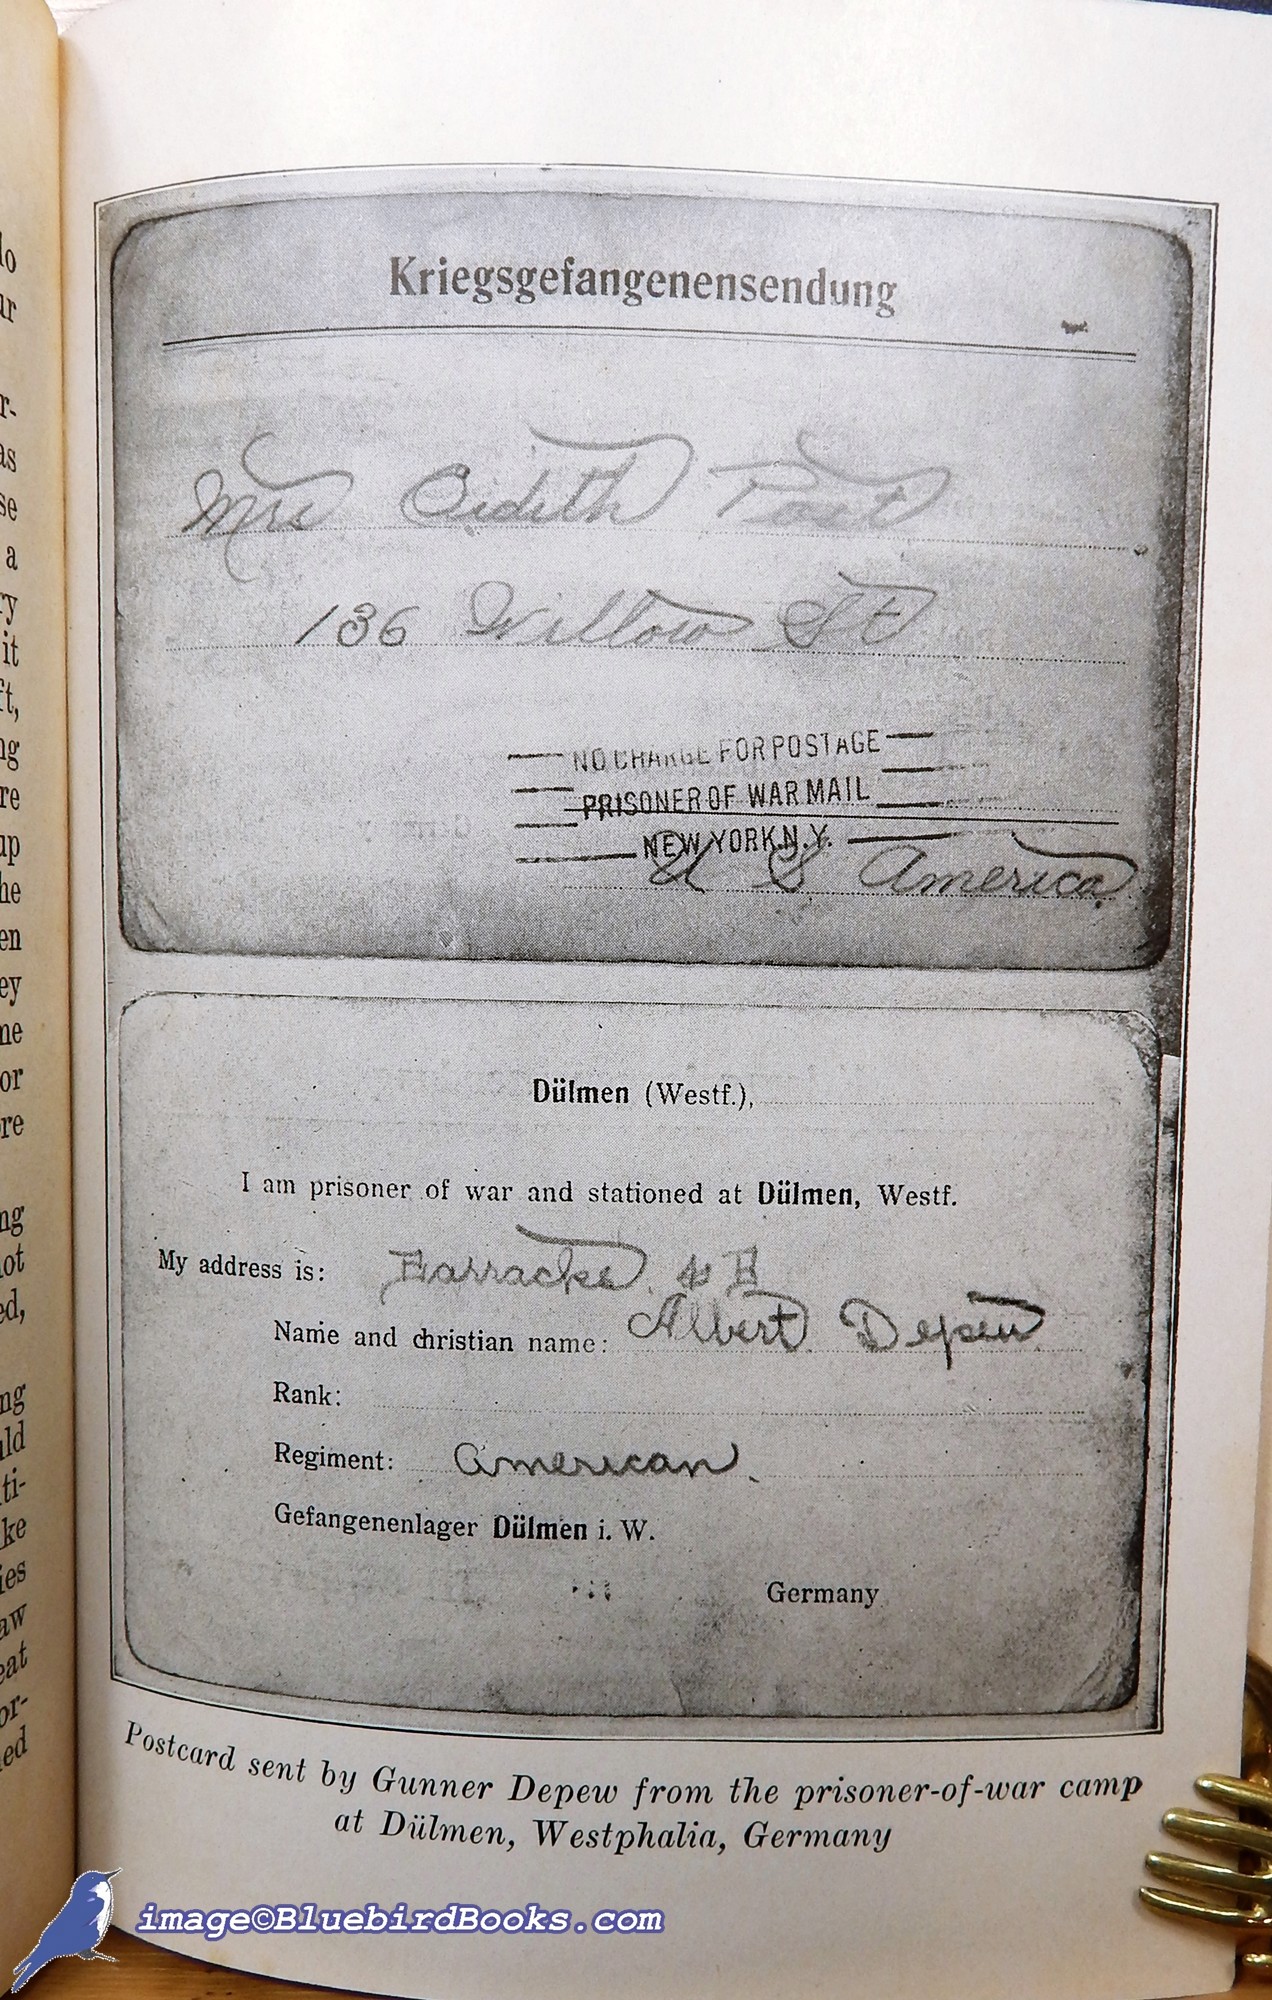 Kriegsgefangenensendung
Mrs Eidith Post
136 Willow St
NO CHARGE FOR POSTAGE
PRISONER OF WAR MAIL
NEW YORK, N.Y.
U S America
Dülmen (Westf.),
I am prisoner of war and stationed at Dülmen, Westf.
My address is: Barracke
Name and christian name: Albert Depew
Rank:
Regiment: American
Gefangenenlager Dülmen i. W.
Germany
Postcard sent by Gunner Depew from the prisoner-of-war camp
at Dülmen, Westphalia, Germany
image©BluebirdBooks.com